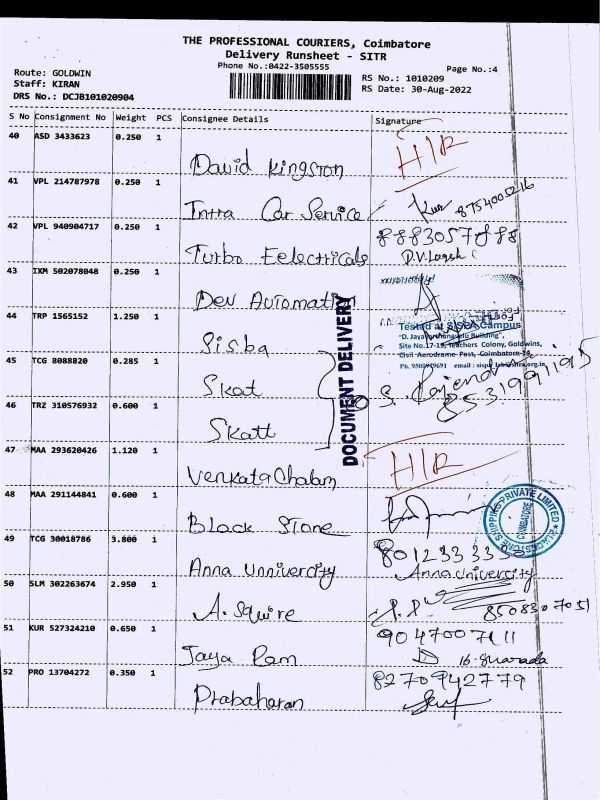 THE PROFESSIONAL COURIERS, Coimbatore
Delivery Runsheet - SITR
Phone No.:0422-3505555
Page No.:4
Route: GOLDWIN
RS No.: 1010209
Staff: KIRAN
RS Date: 30-Aug-2022
DRS No.: DCJB101020904
S No Consignment No Weight PCS Consignee Details Signature
40 ASD 3433623 0.250 1
David Kingston H/R
41 VPL 214787978 0.250 1
Intra Car Service 8754005216
42 VPL 940904717 0.250 1
Turbo Eelectricals
43 IXM 502078048 0.250 1
Dev Automation
44 TRP 1565152 1.250 1
Sisba
Tested at SISBA Campus
Site No.17-19, Teachers Colony, Goldwins,
Civil Aerodrome Post, Coimbatore-14.
DOCUMENT DELIVERY
45 TCG 8088820 0.285 1
Skat
S. Rajendran
8531991195
46 TRZ 310576932 0.600 1
Skatt
47 MAA 293620426 1.120 1
Venkata Chalam H/R
48 MAA 291144841 0.600 1
Black Stone
BLACKSTONE SHIPPING PRIVATE LIMITED
COIMBATORE
49 TCG 30018786 3.800 1
Anna Unnivercity Anna University
50 SLM 302263674 2.950 1
A. Squire 8508307051
51 KUR 527324210 0.650 1
9047007111
Jaya Ram
52 PRO 13704272 0.350 1
8270942779
Prabaharan